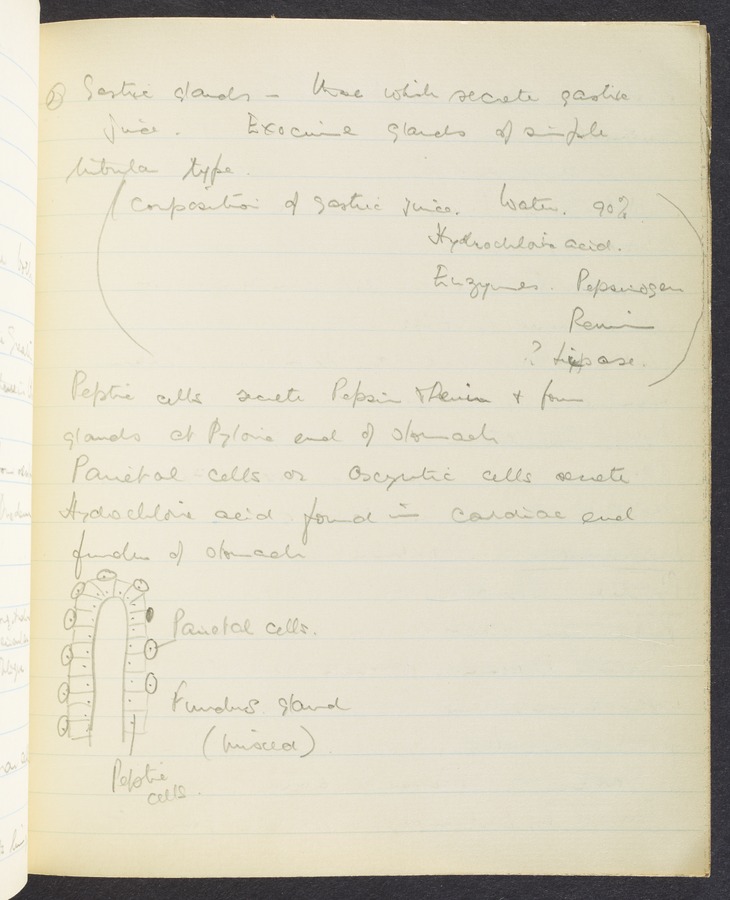 ② Gastric glands - those which secrete gastric
juice. Exocrine glands of simple
tubular type.
(Composition of gastric juice. Water. 90%
Hydrochloric acid.
Enzymes. Pepsinogen
Rennin
? Lipase.)
Peptic cells secrete Pepsin & Renin & form
glands at Pyloric end of stomach
Parietal cells or Oxcyntic cells secrete
Hydrochloric acid found in cardiac end
fundus of stomach
Parietal cells.
Fundus gland
(mixed)
Peptic
cells.